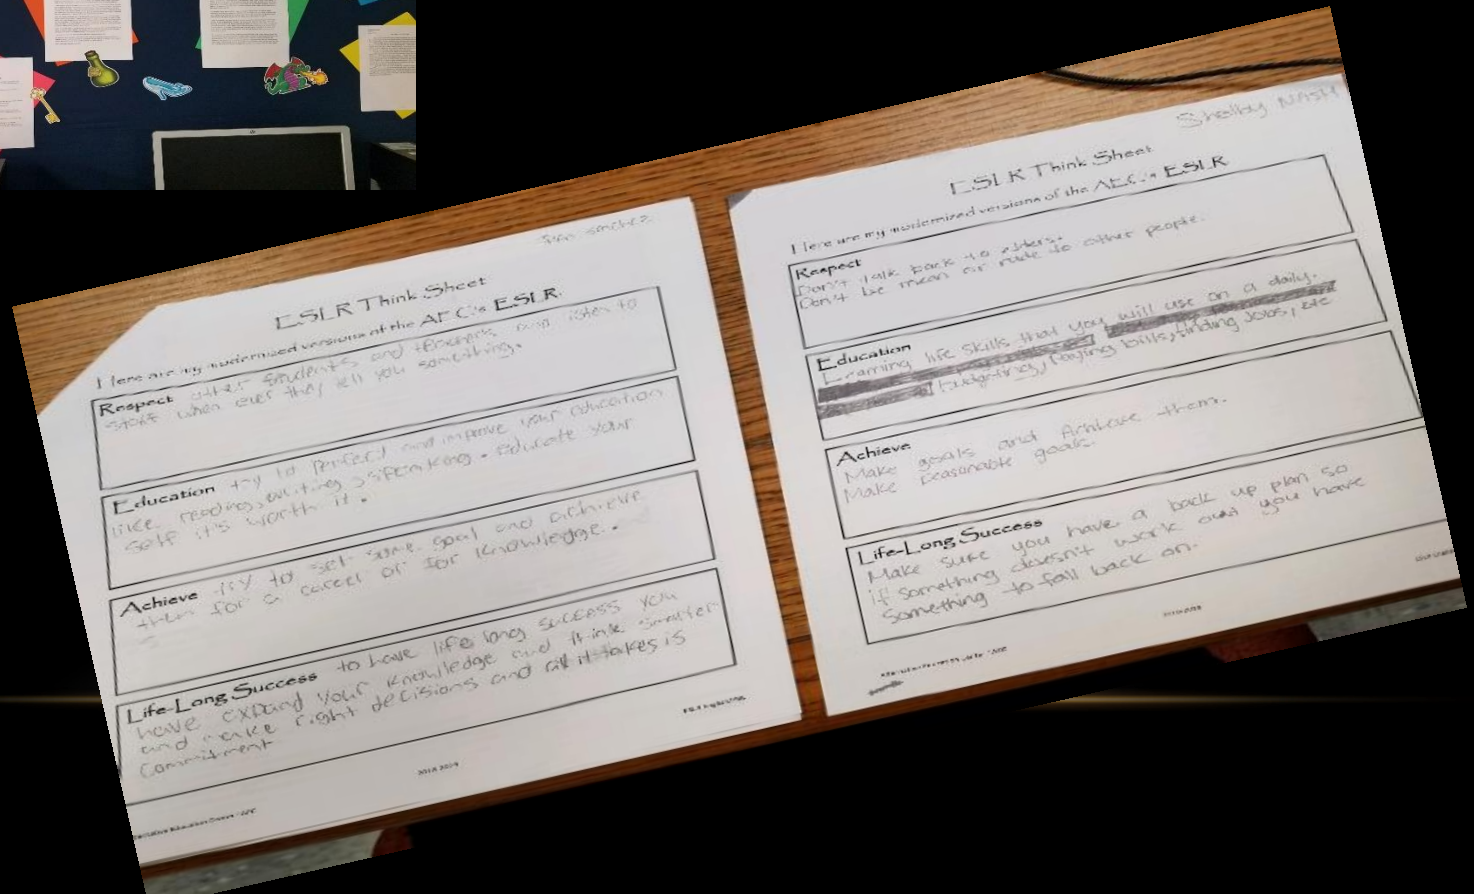 ESLR Think Sheet
Here are my modernized versions of the AEC's ESLR.
Respect other students and teachers and listen to
staff when ever they tell you something.
Education try to perfect and improve your education
like reading, writing, speaking. educate your
self it's worth it.
Achieve try to set some goal and achieve
them for a career or for knowledge.
Life-Long Success to have life long success you
have expand your knowledge and think smarter
and make right decisions and all it takes is
Commitment
2018-2019
Shelby NASH
ESLR Think Sheet
Here are my modernized versions of the AEC's ESLR.
Respect
Don't talk back to elders.
Don't be mean or rude to other people.
Education
Learning life skills that you will use on a daily.
budgeting, paying bills, finding Jobs, etc
Achieve
Make goals and Achieve them.
Make reasonable goals.
Life-Long Success
Make sure you have a back up plan so
if something doesn't work out you have
something to fall back on.